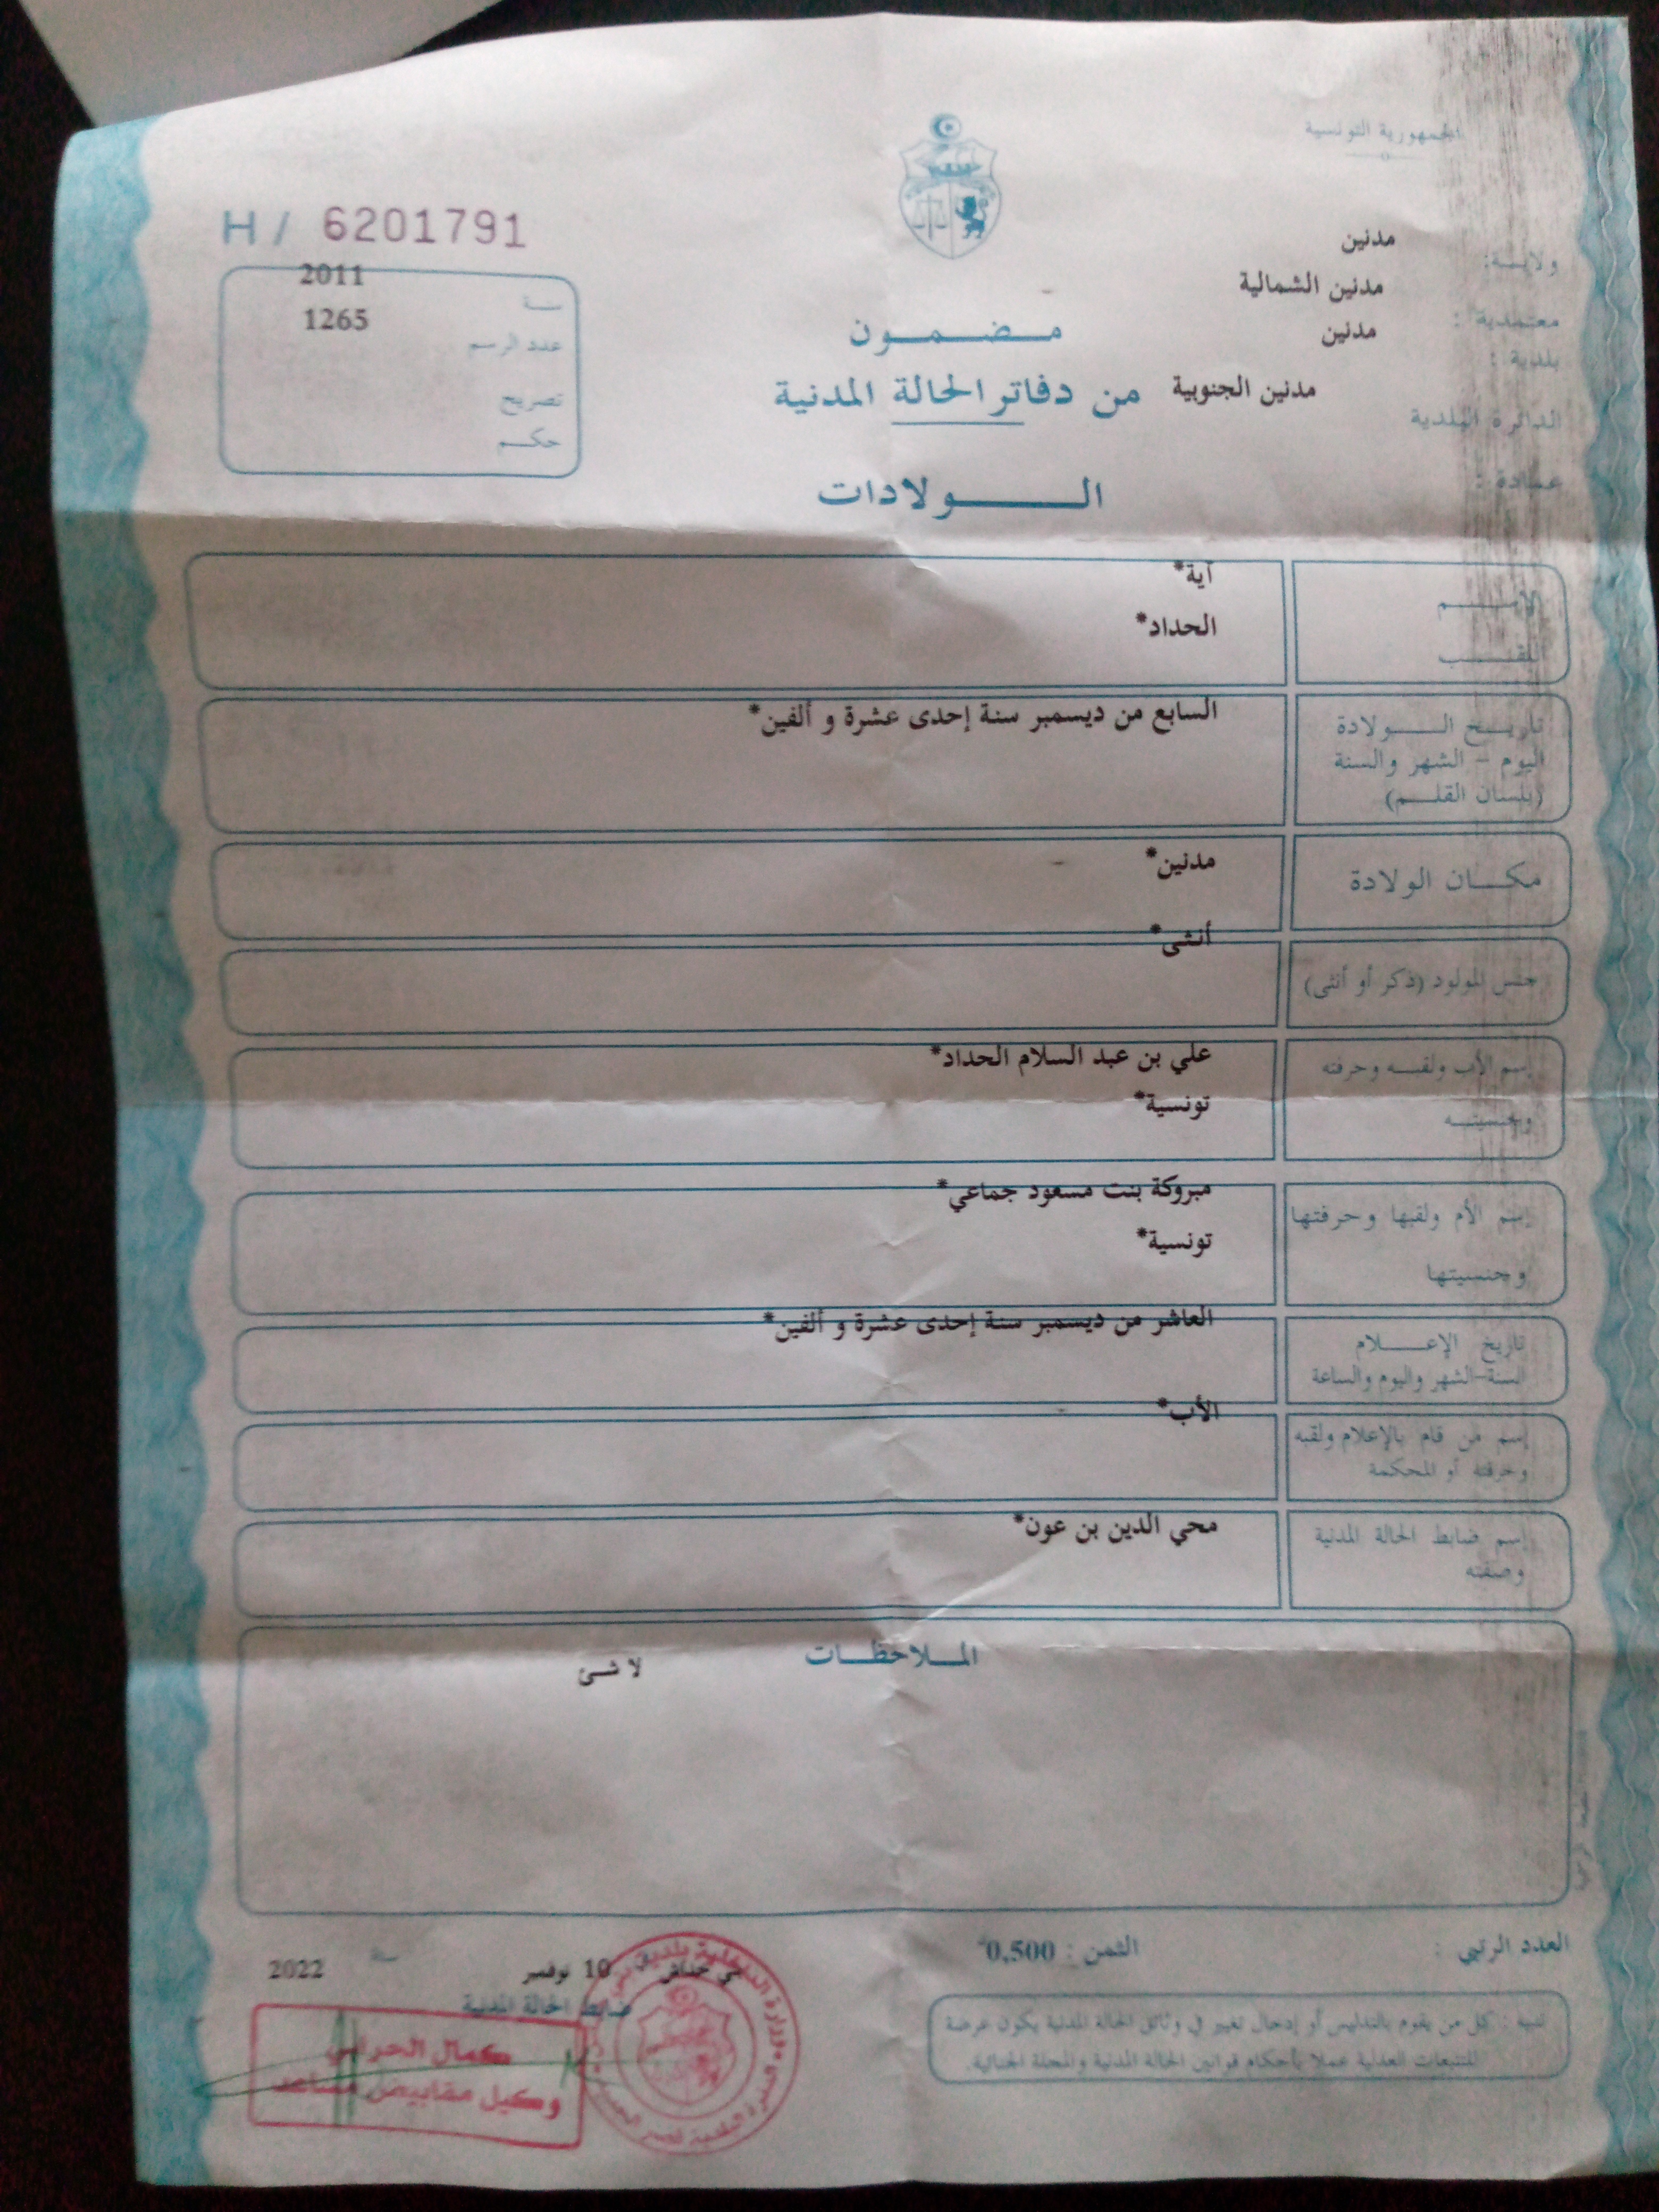 الجمهورية التونسية
H / 6201791
ولاية: مدنين
معتمدية : مدنين الشمالية
بلدية : مدنين
الدائرة البلدية مدنين الجنوبية
عمادة :
سنة 2011
عدد الرسم 1265
تصريح
حكم
مضمون
من دفاتر الحالة المدنية
الولادات
الإسم آية*
اللقب الحداد*
تاريخ الولادة السابع من ديسمبر سنة إحدى عشرة و ألفين*
اليوم - الشهر والسنة
(بلسان القلم)
مكان الولادة مدنين*
جنس المولود (ذكر أو أنثى) أنثى*
إسم الأب ولقبه وحرفته علي بن عبد السلام الحداد*
وجنسيته تونسية*
إسم الأم ولقبها وحرفتها مبروكة بنت مسعود جماعي*
وجنسيتها تونسية*
تاريخ الإعلام العاشر من ديسمبر سنة إحدى عشرة و ألفين*
السنة-الشهر واليوم والساعة
إسم من قام بالإعلام ولقبه الأب*
وحرفته أو المحكمة
إسم ضابط الحالة المدنية محي الدين بن عون*
وصفته
الملاحظات
لا شئ
العدد الرتبي :
الثمن : 0,500
10 نوفمبر سنة 2022
ضابط الحالة المدنية
كمال الحرابي
وكيل مقابيض مساعد
تنبيه : كل من يقوم بالتدليس أو إدخال تغيير في وثائق الحالة المدنية يكون عرضة
للتتبعات العدلية عملا بأحكام قوانين الحالة المدنية والمجلة الجنائية.